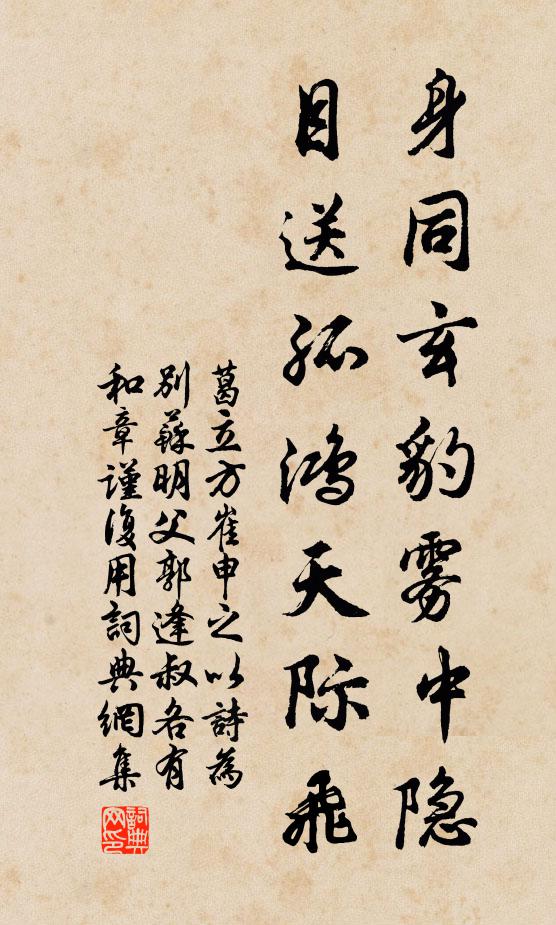 身同玄豹雾中隐
目送孤鸿天际飛
葛立方崔申之以詩為
别蘇明父郭逢叔各有
和章謹復用詞典網集
詞典网印